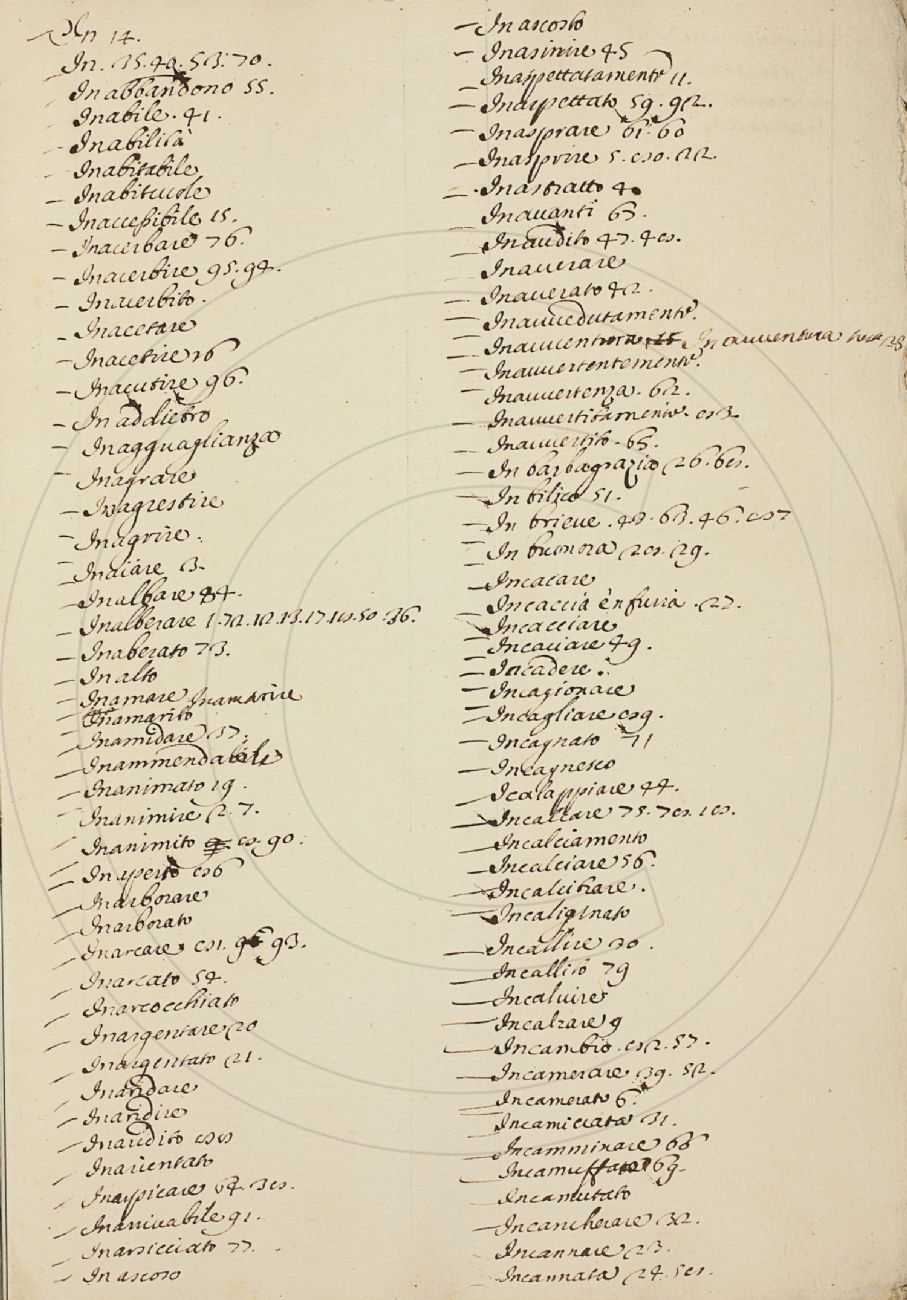 In 14.
In. 25. 40. 53. 70.
In abbandono 55.
Inabile. 41.
Inabilità
Inabitabile
Inabitevole
Inaccessibile 15.
Inacerbare 76.
Inacerbire 95. 94.
Inacerbito.
Inacetare
Inacetire 16
Inacutire 96.
In addietro
Inagguaglianza
Inagrare
Inagrestire
Inagrire.
Inaiare 3.
Inalbare 84.
Inalberare
Inaberato 73.
In alto
Inamare Inamarire
Inamarito
Inamidare 57.
Inammendabile
Inanimato 19.
Inanimire 2. 7.
Inanimito 90.
In aperto
Inarborare
Inarborato
Inarcare 93.
Inarcato 54.
Inarcocchiato
Inargentare 20
Inargentato 21.
Inaridare
Inaridire
Inaridito
Inarientato
Inarpicare 64.
Inarrivabile 91.
Inarsicciato 77.
In ascoso
In ascosto
Inasinire 45
Inaspettatamente 11.
Inaspettato 59. 92.
Inasprare 61. 60
Inasprire 5. 22.
In astratto 4
Inavanti 63.
Inaudito 47.
Inaverare
Inaverato 42.
Inavvedutamente.
Inavventura In avventura 28
Inavvertentemente.
Inavvertenza. 62.
Inavvertitamente.
Inavvertito. 65.
In barbagrazia 26.
In bilico 51.
In brieve. 63. 46.
In buonora 29.
Incacare
In caccia è'n furia. 27.
Incacciare
Incaciare 49.
Incadere.
Incagionare
Incagliare
Incagnato 71
Incagnesco
Icalappiare 44.
Incalcare 75.
Incalciamento
Incalciare 56.
Incalcitrare.
Incaliginato
Incallire 30.
Incallito 79
Incalvire
Incalzare 9
In cambio. 57.
Incamerare 39. 52.
Incamerato 6.
Incamiciata 31.
Incamminare 66
Incamuffare 69.
Incamutato
Incancherare 32.
Incannare 23.
Incannata 24.